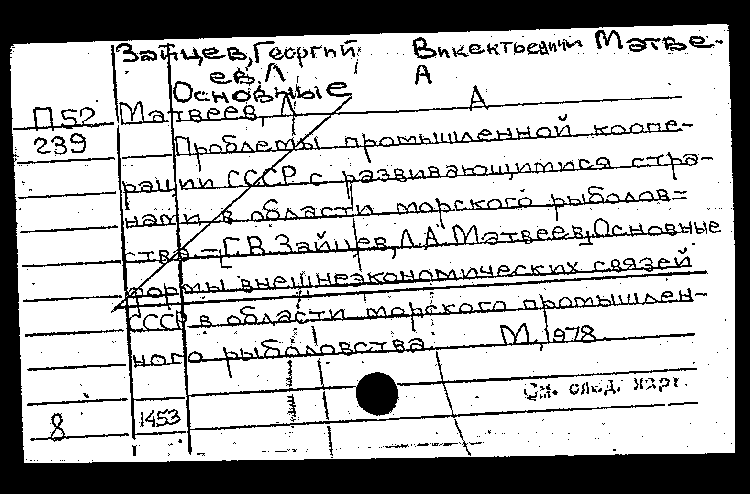 Зайцев, Георгий Викентьевич Матве-
ев, Л А
Основные
П52 Матвеев, Л А
239 Проблемы промышленной коопе-
рации СССР с развивающимися стра-
нами в области морского рыболов=
ства.–[Г.В. Зайцев, Л.А. Матвеев], Основные
формы внешнеэкономических связей
СССР в области морского промышлен-
ного рыболовства М., 1978.
См. след. карт.
8 1453